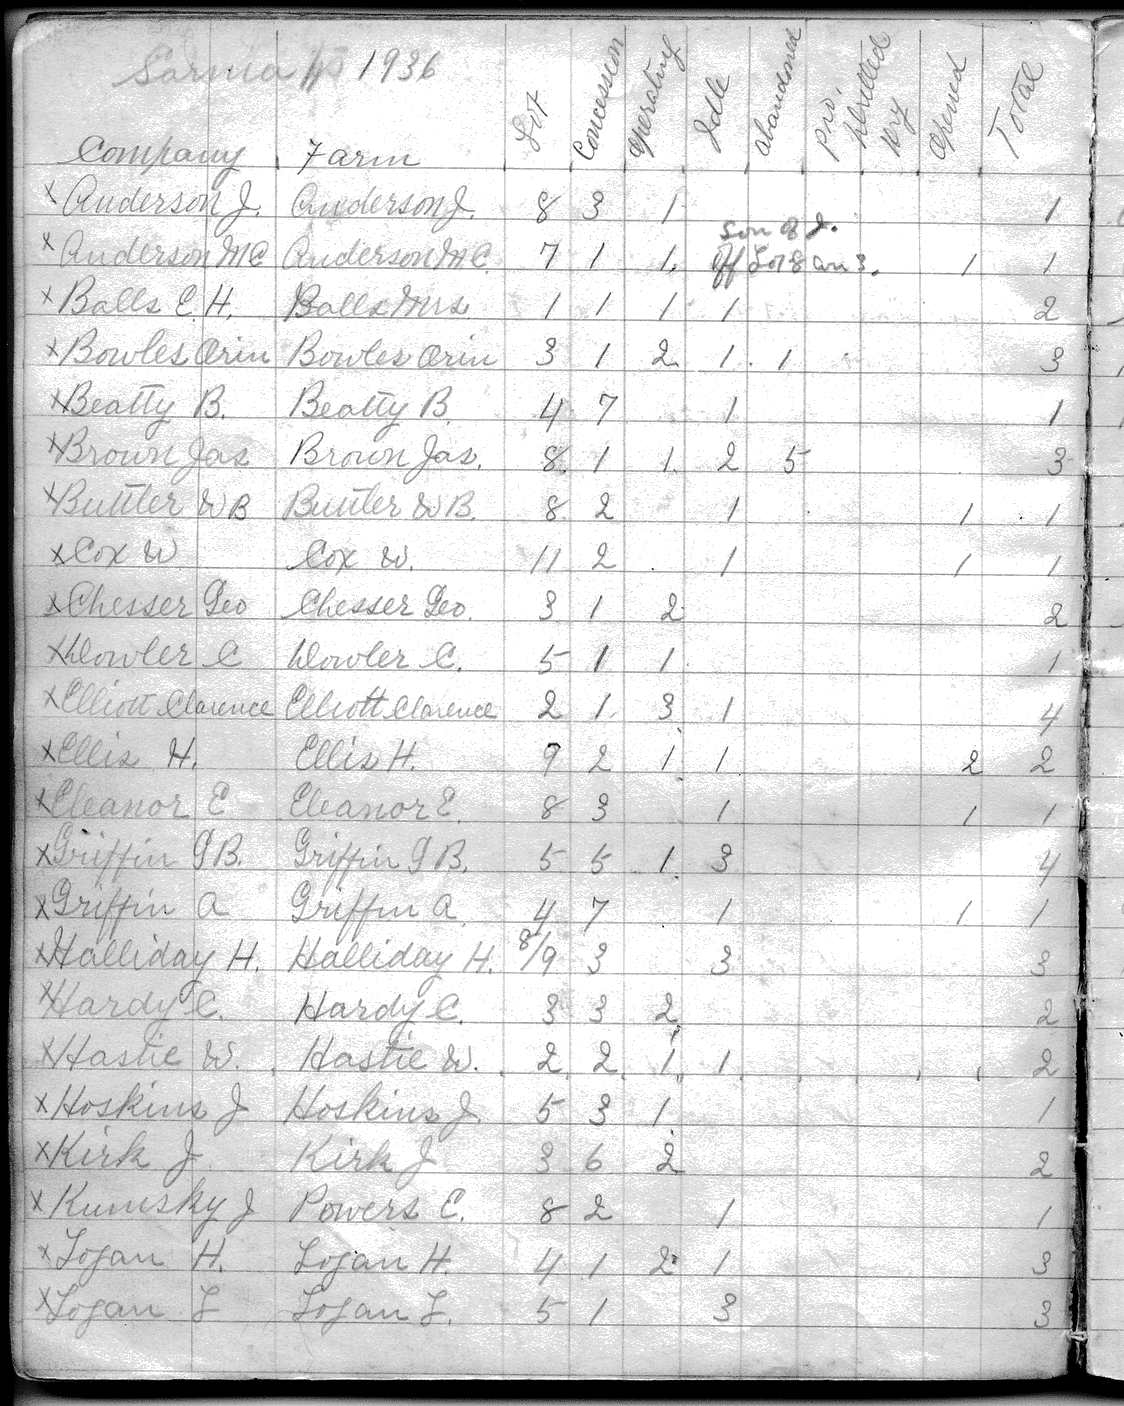 Sarnia 1936
Company Farm Lot Concession Operating Idle Abandoned Drilled Dry Opened Total
x Anderson J. Anderson J. 8 3 1 1
son of J.
x Anderson MC Anderson MC. 7 1 1. off Lot 8 con 3. 1 1
x Balls E. H. Balls Mrs 1 1 1 1 2
x Bowles Orin Bowles Orin 3 1 2 1 1 3
x Beatty B. Beatty B. 4 7 1 1
x Brown Jas Brown Jas. 8 1 1 2 5 3
x Buttler W B Buttler W B. 8 2 1 1 1
x Cox W. Cox W. 11 2 1 1 1
x Chesser Geo Chesser Geo. 3 1 2 2
x Dowler C Dowler C. 5 1 1 1
x Elliott Clarence Elliott Clarence 2 1 3 1 4
x Ellis H. Ellis H. 9 2 1 1 2 2
x Eleanor E Eleanor E. 8 3 1 1 1
x Griffin G B. Griffin G B. 5 5 1 3 4
x Griffin A Griffin A 4 7 1 1 1
x Halliday H. Halliday H. 8/9 3 3 3
x Hardy C. Hardy C. 3 3 2 2
x Hastie W. Hastie W. 2 2 1 1 2
x Hoskins J Hoskins J. 5 3 1 1
x Kirk J Kirk J 3 6 2 2
x Kumsky J Powers C. 8 2 1 1
x Logan H. Logan H. 4 1 2 1 3
x Logan L Logan L. 5 1 3 3